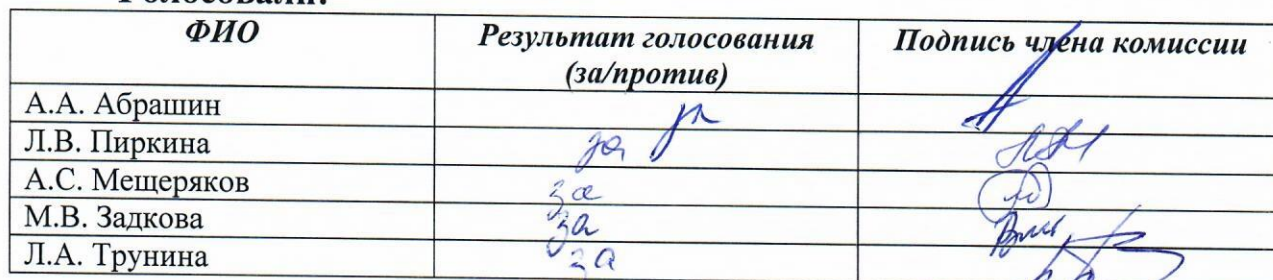 Голосовали:
ФИО Результат голосования (за/против) Подпись члена комиссии
А.А. Абрашин за
Л.В. Пиркина за
А.С. Мещеряков за
М.В. Задкова за
Л.А. Трунина за